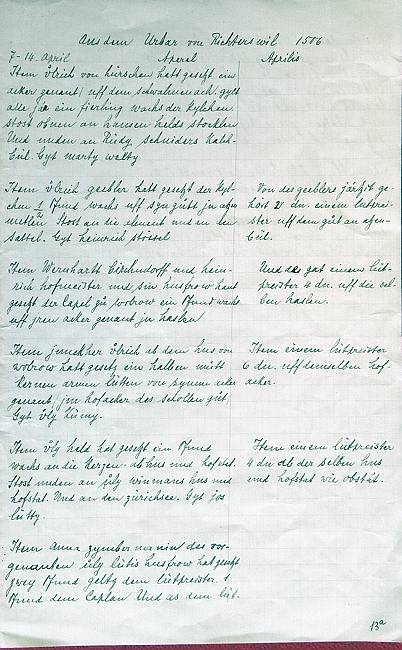 Aus dem Urbar von Richterswil 1506
7-14. April Aperel Aprilis
Item Ulrich von hürschen hatt gesetzt ein
acker genant uff dem schwalmenach, gylt
alle jar ein fierling wachs der kylchen.
Stost obnen an hansen helds stocklen
Und unden an Rüdy schniders
Gyt marty welty
Item Ulrich geebler hatt gesetzt der kyl-
chen 1/2 Pfund wachs uff syn gütt jn
Stost an die alment und an den
sattel. Gyt heinrich stössel
Von des geeblers järzit ge-
hört 2 dn. einem lütprei-
ster uff dem güt an
Item Wernhartt und hein-
rich hofmeister und sin husfrow hand
gesetzt der Capel zu wobrow ein Pfund wachs
uff jren acker genant jn haslen
Und das gat einem lüt-
preister 4 dn. uff die sel-
ben haslen.
Item junckher Ulrich ab dem hus von
wobrow hatt gesetz ein halben mütt
kernen armen lüten von synem acker
genant jm hofacker des schollen güt,
Gyt Uly
Item einem lütpreister
6 dn. uff demselben hof-
acker.
Item Uly held hat gesetzt ein Pfund
wachs an die kerzen ab hus und hofstat.
Stost unden an july winmans hus und
hofstat. Und an den zürichsee. Gyt jos
lütty.
Item einem lütpreister
4 dn ab der selben hus
und hofstat wie obstät.
Item Anna zymberman des vor-
genanten uly lütis husfrow hat gesetzt
zwey Pfund geltz dem lütpreister 1
Pfund dem Caplan Und as dem lüt-
13a